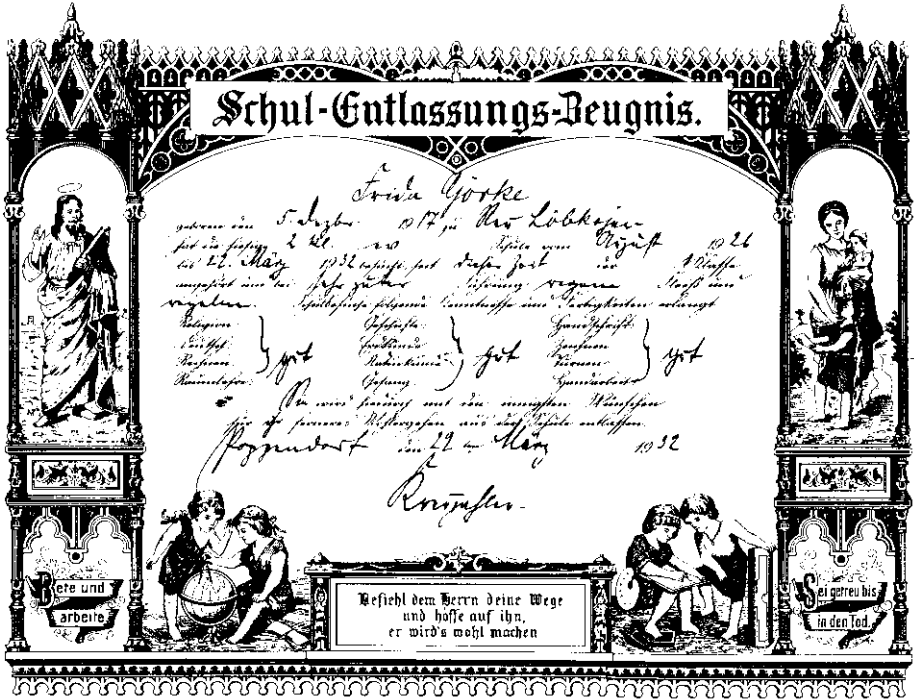 Schul-Entlassungs-Zeugnis.
Frida Görke
geboren den 5. Dezbr. 1917 zu Neu Lobkojen
hat die hiesige 2 kl. ev Schule vom August 1926
bis 22. März 1932 besucht, seit dieser Zeit der 1 Klasse
angehört und bei sehr guter Führung regem Fleiß und
regelm. Schulbesuche folgende Kenntnisse und Fertigkeiten erlangt
Religion: Geschichte: Handschrift:
Deutsch: Erdkunde: Zeichnen:
Rechnen: gut Naturkunde: gut Turnen: gut
Raumlehre: Gesang: Handarbeit:
Sie wird hierdurch mit den innigsten Wünschen
für ihr ferneres Wohlergehen aus der Schule entlassen.
Poppendorf den 22 ten März 1932
Bete und
arbeite
Befiehl dem Herrn deine Wege
und hoffe auf ihn,
er wird's wohl machen
Sei getreu bis
in den Tod.